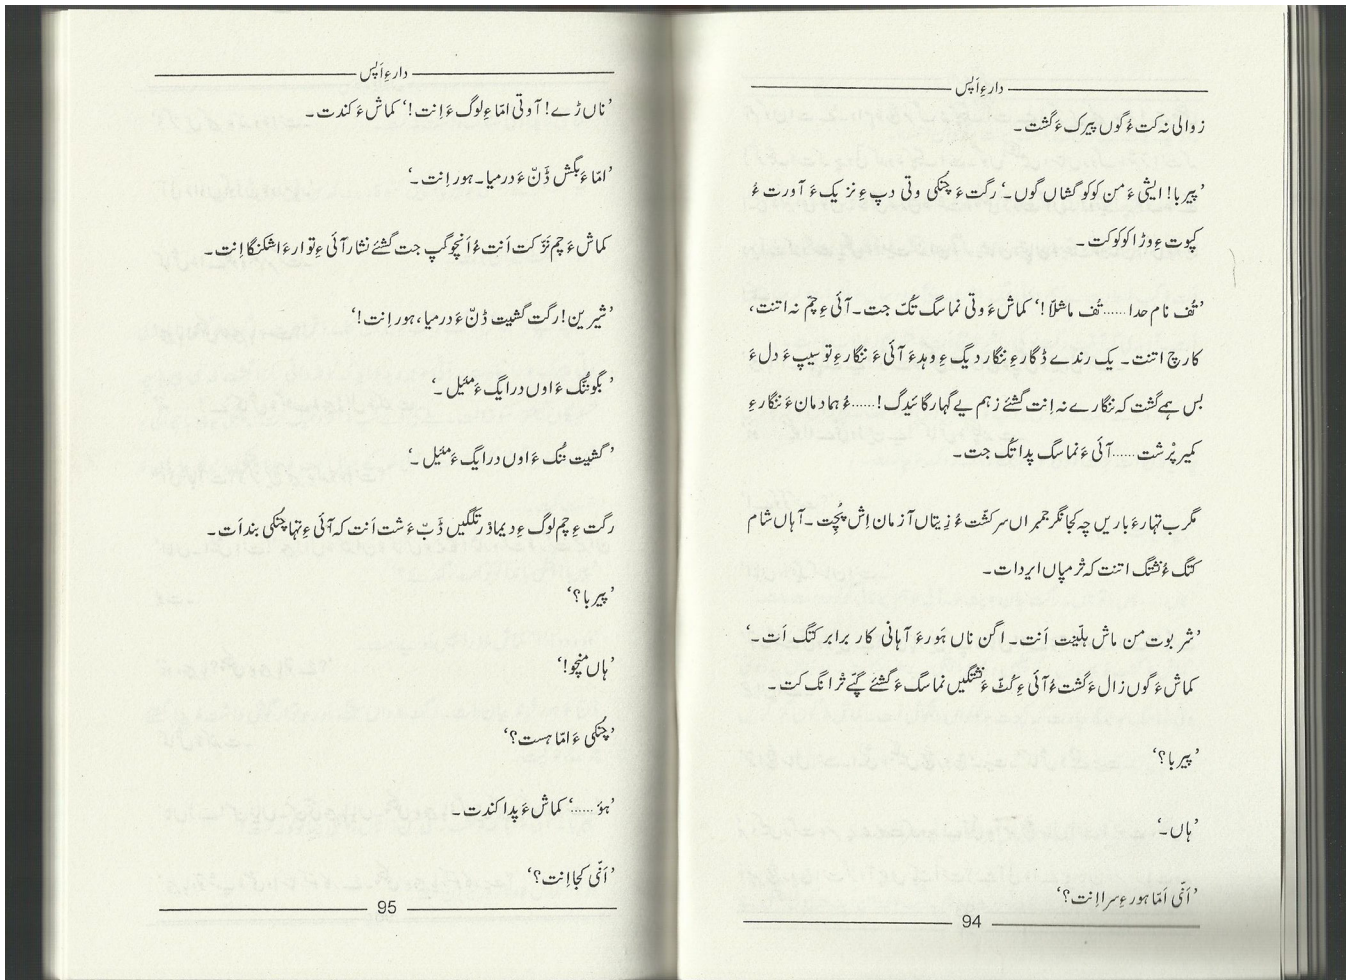 دارءِ اَپس
زوالی نہ کت ءُ گوں پیرک ءَ گشت۔
’پیر با! ایشی ءَ من کوکو گشاں گوں۔‘ رگت ءَ چنکی وتی دپ ءِ نزیک ءَ آورت ءُ
کپوت ءِ وڑا کوکو کت۔
’تُف نام حدا......تُف ماشلّا!‘ کماش ءَ وتی نماسگ تُکّ جت۔ آئی ءِ چمّ نہ اتنت،
کارچ اتنت۔ یک رندے ڈگارءِ ننگار دیگ ءِ وہدءَ آئی ءَ ننگارءِ توسیپ ءَ دل ءَ
بس ہمے گشت کہ ننگارے نہ اِنت گشئے زہم یے گہار گائیدگ!......ءُ ہما دمان ءَ ننگارءِ
کمیر پْرشت......آئی ءَ نماسگ پدا تُک جت۔
مگرب تہارءَ باریں چہ کجا نگر جمبراں سر کشّت ءُ زیتاں آزمان اِش پچِت۔ آہاں شام
کتگ ءُ نشتگ اتنت کہ ثرمپاں ایر دات۔
’شر بوت من ماش ہلّینت اَنت۔ اگن ناں ہَورءَ آہانی کار برابر کتگ اَت۔‘
کماش ءَ گوں زال ءَ گشت ءُ آئی ءِ کُٹّ ءَ نشتگیں نماسگ ءَ گشئے گپّے ثرانگ کت۔
’پیر با؟‘
’ہاں۔‘
’اَنّی اَمّا ہورءِ سرا اِنت؟‘
94
دارءِ اَپس
’ناں ڑے! آ وتی امّاءِ لوگ ءَ اِنت!‘ کماش ءَ کندت۔
’امّاءَ بگش ڈَنّ ءَ درمیا۔ ہور اِنت۔‘
کماش ءَ چم نَزّ کت اَنت ءُ اَنچو گپ جت گشئے نشار آئی ءِ توارءَ اشکنگا اِنت۔
’شیرین! رگت گشیت ڈنّ ءَ درمیا، ہور اِنت!‘
’بگو نُنُک ءَ اوں درایگ ءَ مئیل۔‘
’گشیت نُنُک ءَ اوں درایگ ءَ مئیل۔‘
رگت ءِ چم لوگ ءِ دیما دْرتگیں ڈَبّ ءَ شت اَنت کہ آئی ءِ تہا چُنکی بند اَت۔
’پیر با؟‘
’ہاں منچو!‘
’چُنکی ءَ امّا ہست؟‘
’ہؤ......‘ کماش ءَ پدا کندت۔
’اَنّی کجا اِنت؟‘
95